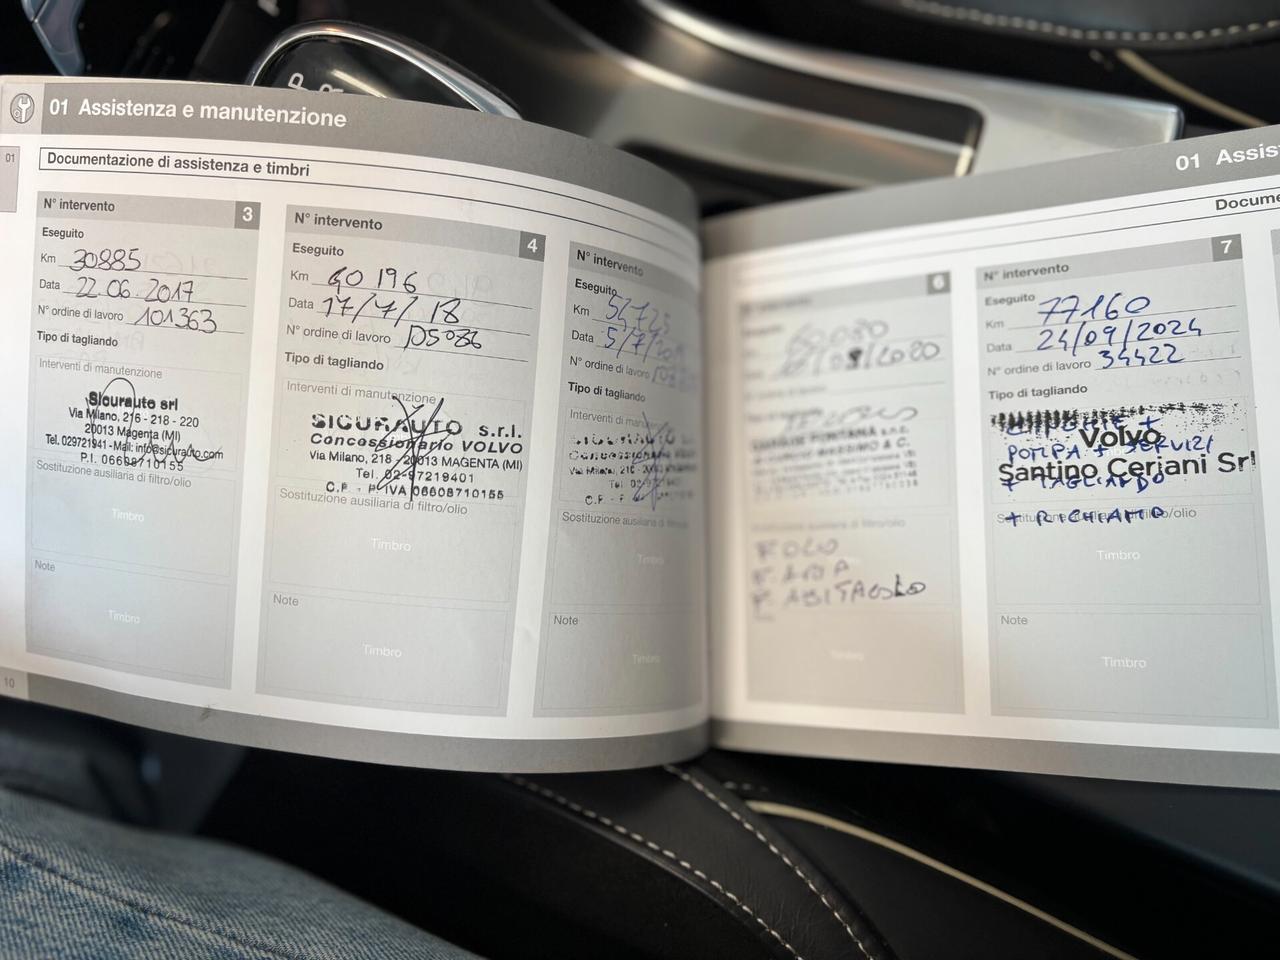 P
R
01 Assistenza e manutenzione
01
Documentazione di assistenza e timbri
N° intervento 3
Eseguito
Km 30885
Data 22.06.2017
N° ordine di lavoro 101363
Tipo di tagliando
Interventi di manutenzione
Sicurauto srl
Via Milano, 216 - 218 - 220
20013 Magenta (MI)
Tel. 029721941 - Mail: info@sicurauto.com
P.I. 06698710155
Sostituzione ausiliaria di filtro/olio
Timbro
Note
Timbro
10
N° intervento 4
Eseguito
Km 40196
Data 17/7/18
N° ordine di lavoro 105086
Tipo di tagliando
Interventi di manutenzione
SICURAUTO s.r.l.
Concessionario VOLVO
Via Milano, 218 - 20013 MAGENTA (MI)
Tel. 02-97219401
C.F. - P. IVA 06608710155
Sostituzione ausiliaria di filtro/olio
Timbro
Note
Timbro
N° intervento
Eseguito
Km 54725
Data 5/7/
N° ordine di lavoro
Tipo di tagliando
Interventi di
Sostituzione ausiliaria di
Timbro
Note
Timbro
01 Assis
Docume
6
/2020
F. OLIO
F. ARIA
F. ABITACOLO
Timbro
N° intervento 7
Eseguito
Km 77160
Data 24/09/2024
N° ordine di lavoro 34422
Tipo di tagliando
Volvo
POMPA + SERVIZI
Santino Ceriani Srl
+ TAGLIANDO
Sostituzione ausiliaria di filtro/olio
+ RICHIAMO
Timbro
Note
Timbro